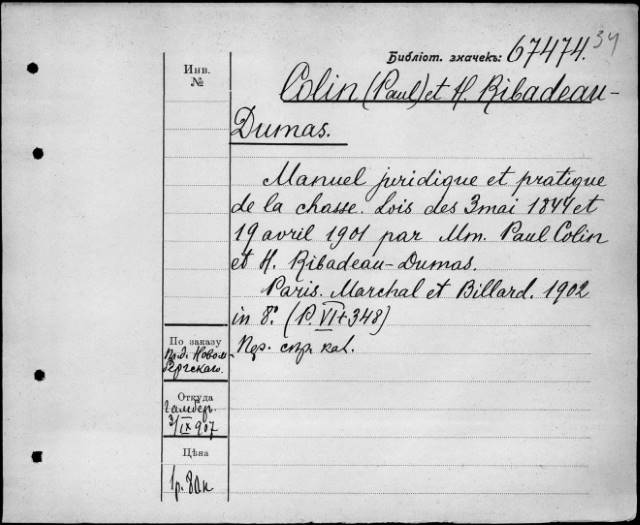 Библіот. значекъ: 67474. 34
Инв.
№
Colin (Paul) et H. Ribadeau-
Dumas.
Manuel juridique et pratique
de la chasse. Lois des 3 mai 1844 et
19 avril 1901 par Mm. Paul Colin
et H. Ribadeau-Dumas.
Paris. Marchal et Billard. 1902
in 8º. (P. VI+348)
По заказу
Откуда
3/IX 907
Цѣна
1р. 80к